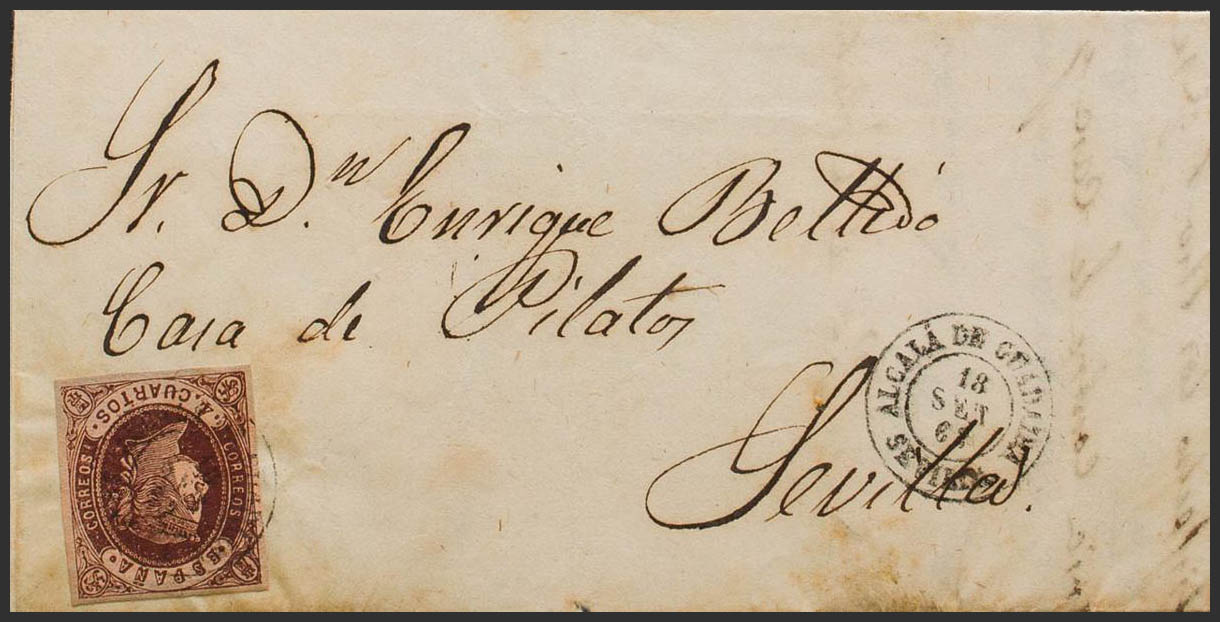 Sr. Dn. Enrique Bellido
Casa de Pilatos
Sevilla.
ALCALÁ DE GUADAIRA
18
SET
SEVILLA
4. CUARTOS.
CORREOS
CORREOS
ESPAÑA